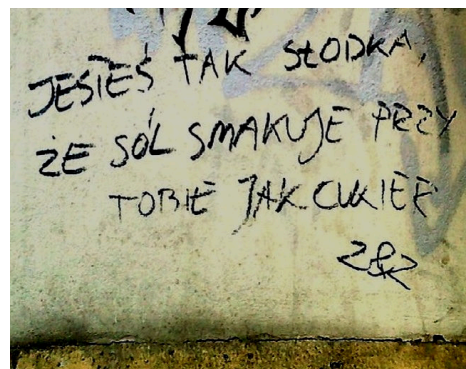 JESIEŚ TAK SŁODKA,
ŻE SÓL SMAKUJE PRZY
TOBIE JAK CUKIER